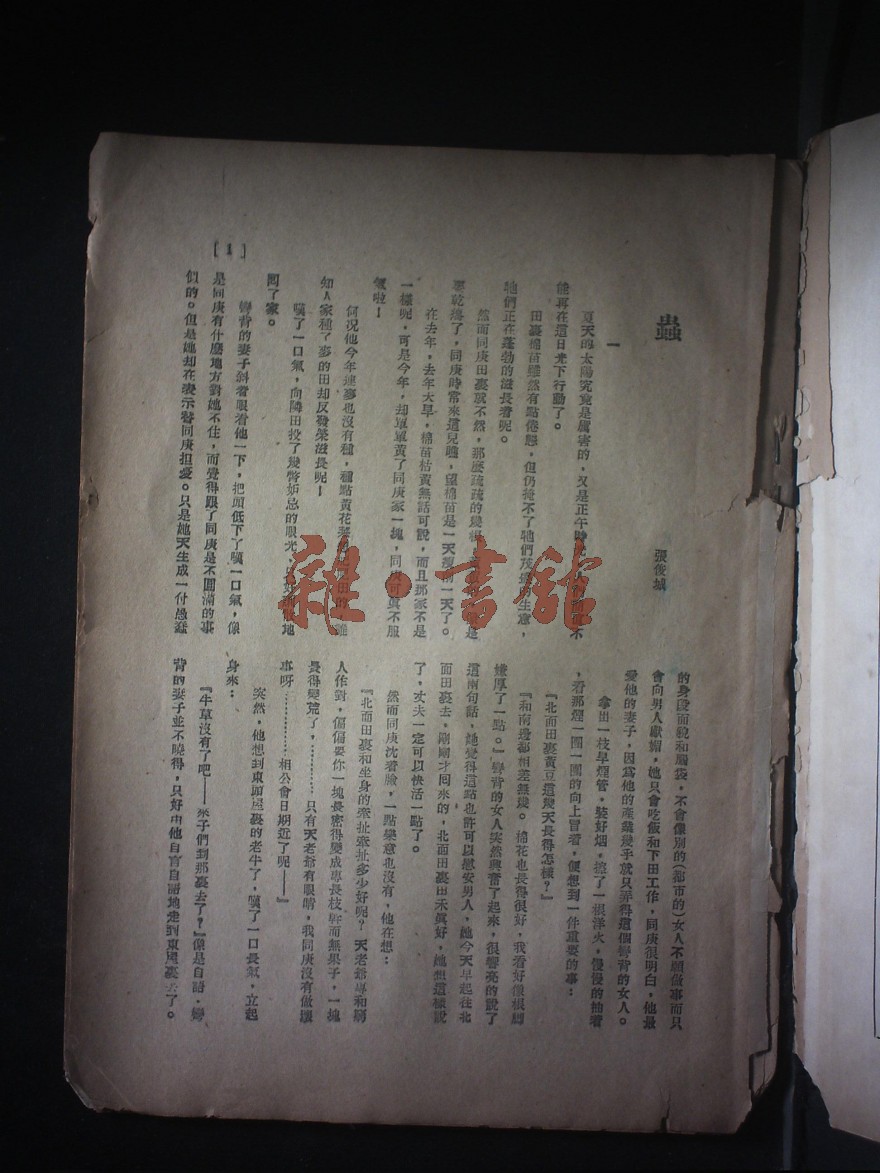 蟲
張俊城
一
夏天的太陽究竟是厲害的,又是正午時
能再在這日光下行動了。
田裏棉苗雖然有點倦態,但仍掩不了牠們茂
的生意,
牠們正在蓬勃的滋長着呢。
然而同庚田裏就不然,那麽疏疏的幾根
是
要乾癟了,同庚時常來這兒瞧,望棉苗是一天
一天了。
在去年,去年大旱,棉苗枯黃無話可說,而且那家不是
一樣呢,可是今年,却單單黃了同庚家一塊,同庚可眞不服
氣啦!
何況他今年連麥也沒有種,種點黃花
田的
誰
知人家種了麥的田却反發榮滋長呢!
嘆了一口氣,向隣田投了幾瞥妒忌的眼光,只好
地
囘了家。
彎背的妻子斜着眼看他一下,把頭低下了嘆一口氣,像
是同庚有什麽地方對她不住,而覺得跟了同庚是不圓滿的事
似的。但是她却在表示替同庚担憂。只是她天生成一付愚蠢
的身段面貌和腦袋,不會像別的(都市的)女人不願做事而只
會向男人獻媚,她只會吃飯和下田工作,同庚很明白,他最
愛他的妻子,因爲他的產業幾乎就只弄得這個彎背的女人。
拿出一枝旱煙管,裝好烟,擦了一根洋火,慢慢的抽着
,看那煙一圈一圈的向上冒着,便想到一件重要的事:
『北面田裏黃豆這幾天長得怎樣?』
『和南邊都相差無幾。棉花也長得很好,我看好像根脚
嫌厚了一點。』彎背的女人突然興奮了起來,很響亮的說了
這兩句話,她覺得這點也許可以慰安男人,她今天早起往北
面田裏去,剛剛才回來的,北面田裏田禾眞好,她想這樣說
了,丈夫一定可以快活一點了。
然而同庚沈着臉,一點樂意也沒有,他在想:
『北面田裏和坐身的牽扯牽扯多少好呢?天老爺專和窮
人作對,偏偏要你一塊長密得變成專長枝幹而無果子,一塊
長得變荒了,…………只有天老爺有眼睛,我同庚沒有做壞
事呀…………租公會日期近了呢——』
突然,他想到東頭屋裏的老牛了,嘆了一口長氣,立起
身來:
『牛草沒有了吧——朶子們到那裏去了?』像是自語,彎
背的妻子並不曉得,只好由他自言自語地走到東頭屋裏去了。
[1]
雜·書館